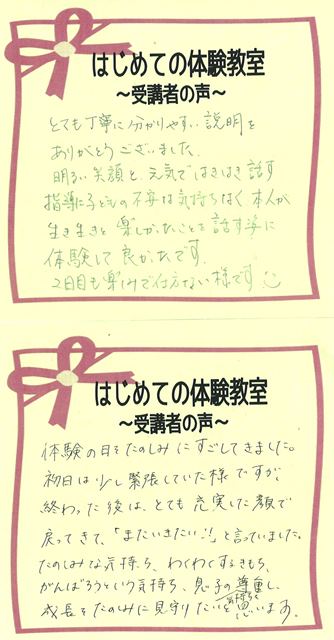 はじめての体験教室
～受講者の声～
とても丁寧に分かりやすい説明を
ありがとうございました。
明るい笑顔と、元気ではきはき話す
指導に子どもの不安な気持ちはなく本人が
生き生きと楽しかったことを話す姿に
体験して良かったです。
2日目も楽しみで仕方ない様です
はじめての体験教室
～受講者の声～
体験の日をたのしみにすごしてきました。
初日は少し緊張していた様ですが、
終わった後は、とても充実した顔で
戻ってきて、「またいきたい!!」と言っていました。
たのしみな気持ち、わくわくするきもち、
がんばろうという気持ち、息子の気持ちを尊重し、
成長をたのしみに見守りたいと思います。